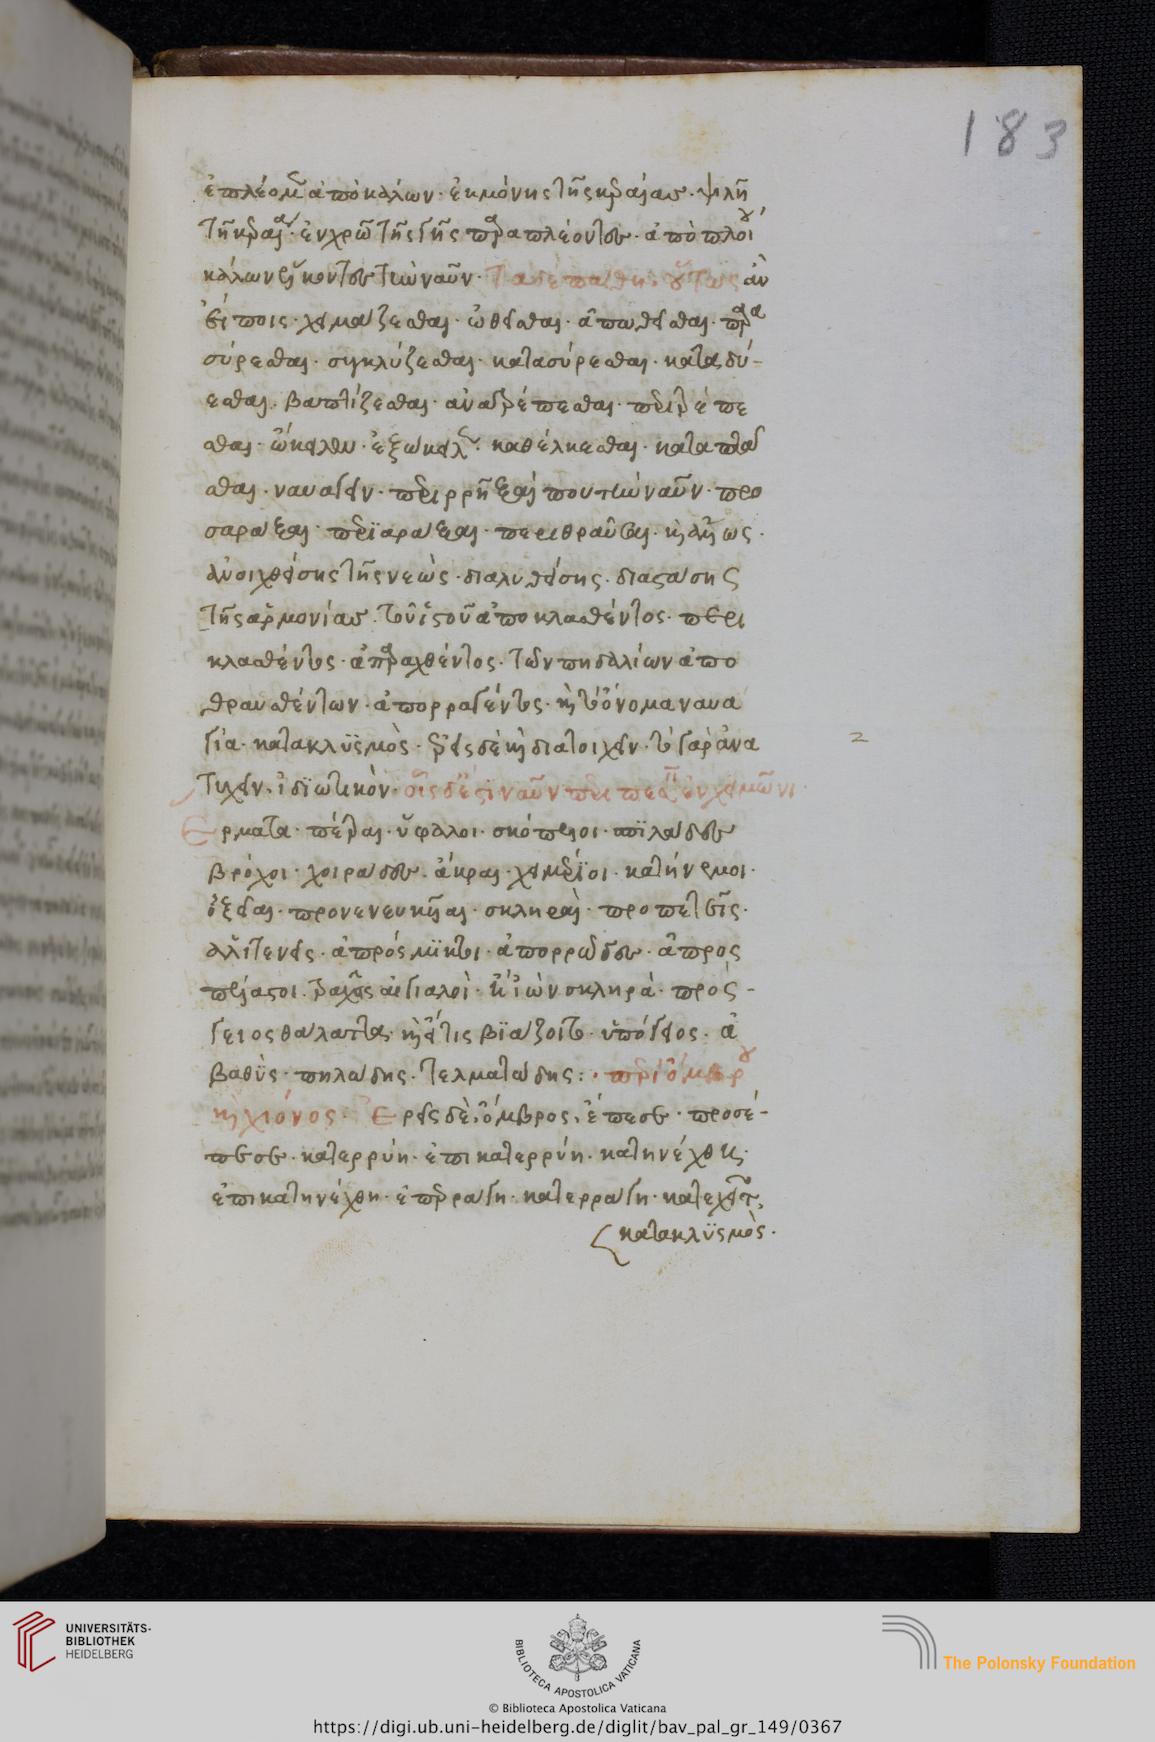 183
ἐπλέομεν ἀπὸ κάλων· ἐκ μόνης τῆς κεραίας· ψιλῇ
τῇ κεραίᾳ· ἐν χρῷ τῆς γῆς παραπλέοντες· ἀπὸ πλοίου
κάλων ἕλκοντες τὴν ναῦν· Τὰ δὲ πάθη· οὕτως ἂν
εἴποις· χειμάζεσθαι· ὠθεῖσθαι· ἀπωθεῖσθαι· παρα
σύρεσθαι· συγκλύζεσθαι· κατασύρεσθαι· καταδύ-
εσθαι· βαπτίζεσθαι· ἀνατρέπεσθαι· περιτρέπε
σθαι· ὠκειλεν· ἐξωκειλεν· καθέλκεσθαι· καταπλατ
σθαι· ναυαγεῖν· περιρρῆξαί που τὴν ναῦν· προ
σαράξαι· περϊαράξαι· περιθραῦσαι· καὶ ἄλλως·
ἀνοιχθείσης τῆς νεὼς· διαλυθείσης· διασπάσης
τῆς ἁρμονίας· τοῦ ἱστοῦ ἀποκλασθέντος· περι
κλασθέντος· ἀπαραχθέντος· τῶν πηδαλίων ἀπο
θραυσθέντων· ἀπορραγέντος· καὶ τὸ ὄνομα ναυα
γία· κατακλϋσμὸς· ἐρεῖς δὲ καὶ διατοιχεῖν· τὸ γὰρ ἀνα
τιχεῖν· ἰδϊωτικὸν· οἷς δὲ ἔστϊν ναῦν περιπεσεῖν ἐν χειμῶνι·
Ερματα· πέτραι· ὕφαλοι· σκόπελοι· σπϊλάδες
βρόχοι· χοιράδες· ἄκραι· χειμέρϊοι· κατήνεμοι·
ὀξεῖαι· προνενευκυῖαι· σκληραὶ· προπετεῖς·
ἁλϊτενεῖς· ἀπρόσμϊκτοι· ἀπορρῶδες· ἄπρος
πέλαστοι· ῥαχίαι αἰγιαλοὶ· ἠϊὼν σκληρά· πρόσ-
γειος θάλαττα· καὶ εἴ τις βϊάζοιτο· ὑπόγειος· ἀ
βαθὺς· πηλώδης· τελματώδης:· περὶ ὄμβρου
καὶ χιόνος· Ἐρεῖς δὲ, ὄμβρος, ἔπεσε· προσέ-
πεσε· κατερρύη· ἐπικατερρύη· κατηνέχθη·
ἐπικατηνέχθη· ἐπερράγη· κατερράγη· κατεχεῖτο,
κατακλϋσμὸς·
UNIVERSITÄTS-
BIBLIOTHEK
HEIDELBERG
BIBLIOTECA APOSTOLICA VATICANA
The Polonsky Foundation
© Biblioteca Apostolica Vaticana
https://digi.ub.uni-heidelberg.de/diglit/bav_pal_gr_149/0367